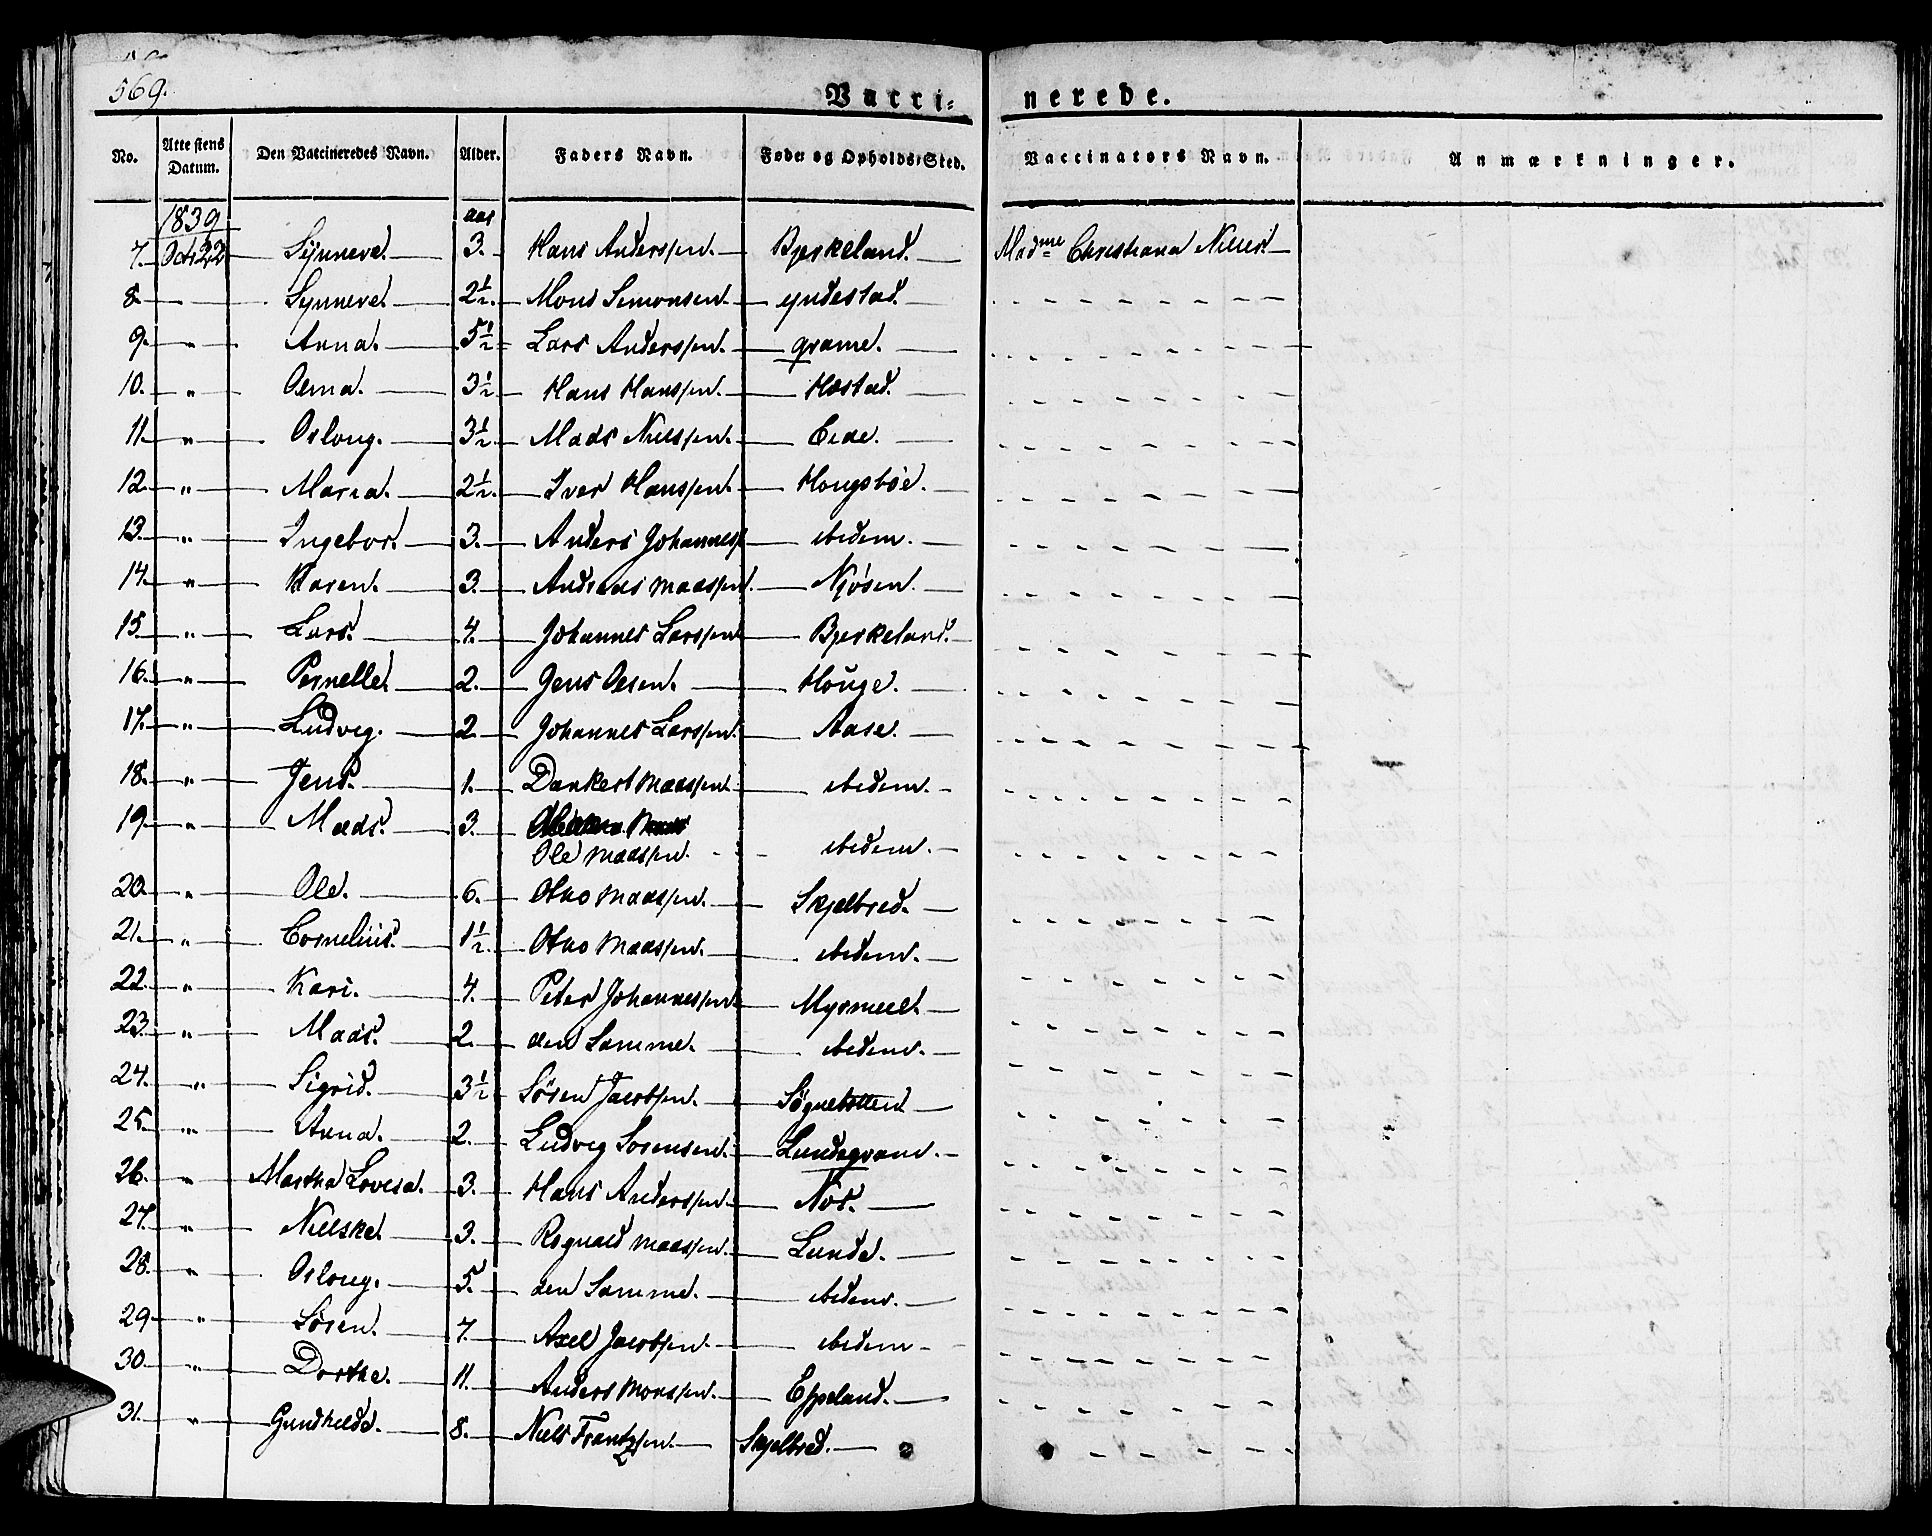 569.
Vacci-nerede.
No. Attestens Datum. Den Vaccineredes Navn. Alder. Faders Navn. Føde og Opholds-Sted. Vaccinators Navn. Anmærkninger.
1839 aar
7. Oct 22 Synneve. 3. Hans Anderssen. Bjerkeland. Madme Christiana
8. - Synneve. 2½. Mons Simonsen. yndestad
9. " Anna. 5½ Lars Anderssen. grame.
10. " Oema. 3½ Hans Hanssen. Hæstad.
11. " Osloug. 3½. Mads Nielssen. Eide.
12. " Maria. 2½. Iver Hanssen. Hougsbøe.
13. " Ingebor. 3. Anders Johanness ibidem.
14. " Karen. 3. Andreas Madssen. Njøsen.
15. " Lars. 4. Johannes Larssen Bjerkeland.
16. " Pernelle. 2. Jens Oesen. Houge.
17. " Ludvig. 2 Johannes Larssen. Aase.
18. " Jens. 1. Dankert Madssen. ibidem.
19. " Mads. 3.
Ole Madssen. ibidem.
20. " Ole. 6. Otto Madssen. Skjelbred.
21. " Cornelius. 1½. Otto Madssen. ibidem.
22. " Kari. 4. Peter Johannessen Myrmeel.
23. " Mads. 2. den Samme. ibidem.
24. " Sigrid. 3½ Søren Jacobsen. Søgnebotten
25. " Anna. 2. Ludvig Sørensen. Lundegram.
26. " Martha Lovisa. 3. Hans Anderssen Nos.
27. " Nielske. 3. Rognald Madssen. Lunde.
28. " Osloug. 5. den Samme. ibidem.
29 " Søren. 7. Axel Jacobsen. ibidem
30. " Dorthe. 11. Anders Monssen. Eppeland.
31. " Gundhilde. 8. Niels Frantzsen. Skjelbred.